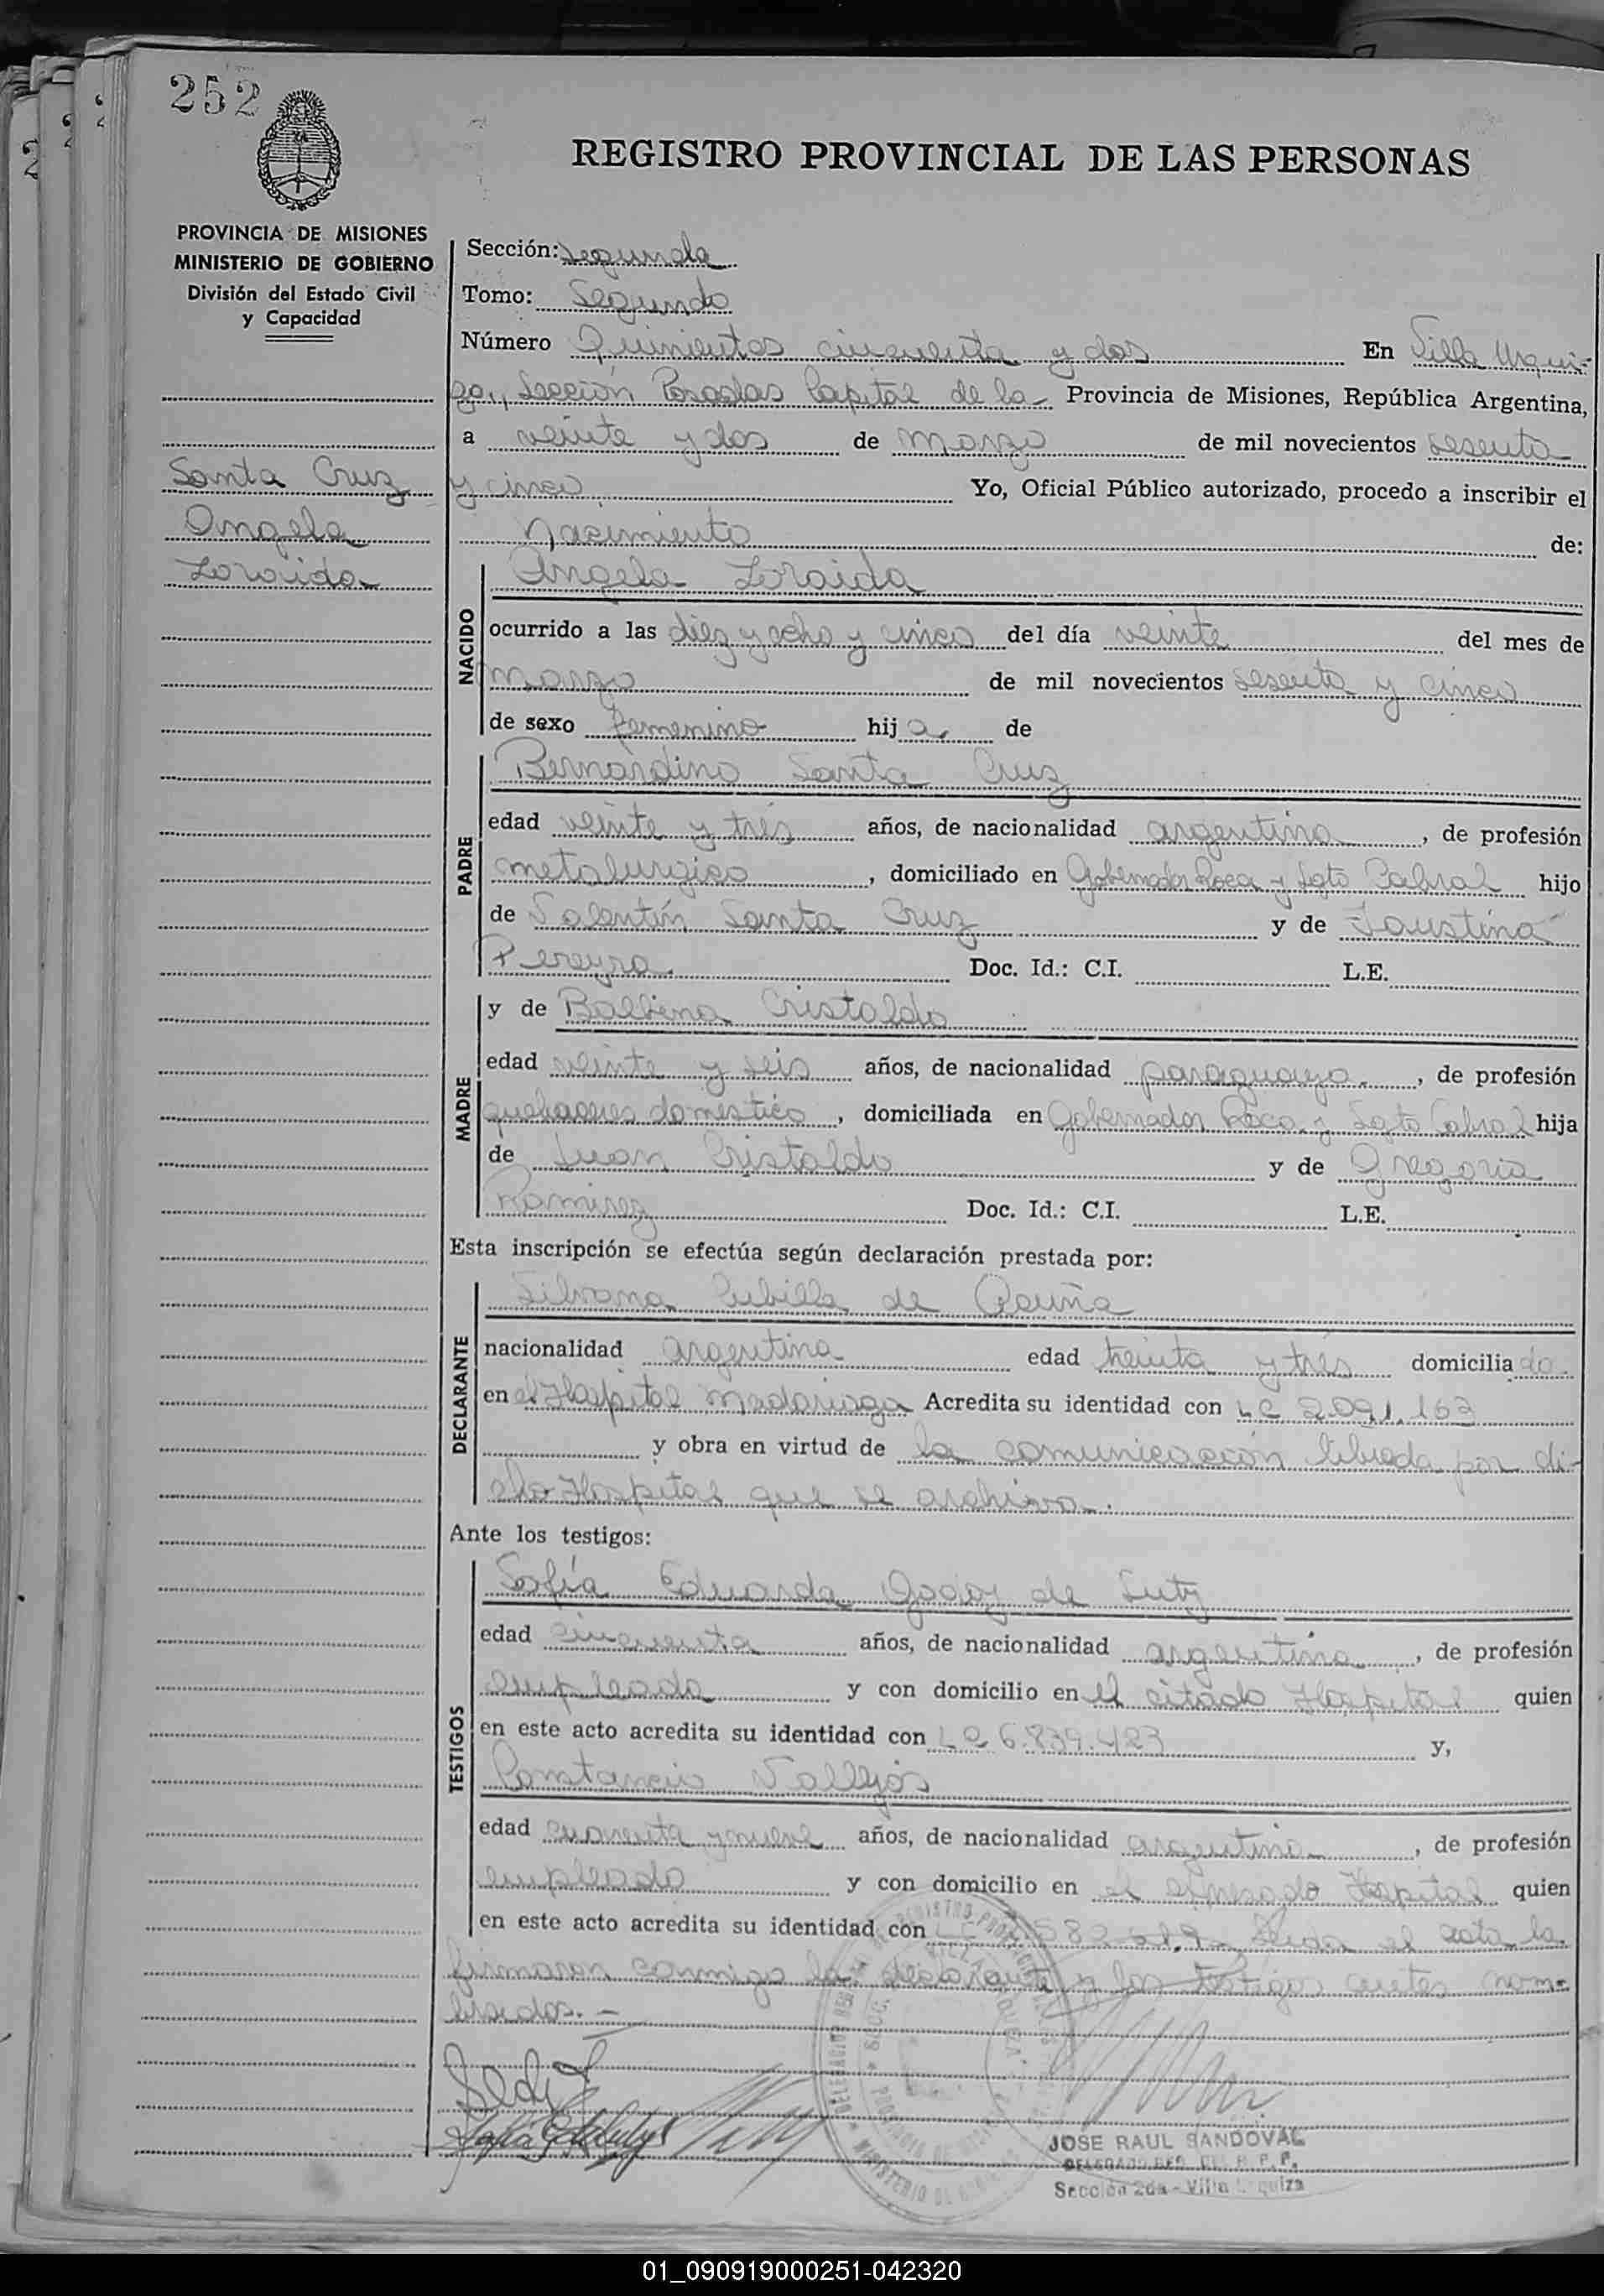 252
REGISTRO PROVINCIAL DE LAS PERSONAS
PROVINCIA DE MISIONES
MINISTERIO DE GOBIERNO
División del Estado Civil
y Capacidad
Santa Cruz
Angela
Zoraida
Sección: Segunda
Tomo: Segundo
Número Quinientos cincuenta y dos En Villa Urqui-
za, Sección Posadas Capital de la Provincia de Misiones, República Argentina,
a veinte y dos de marzo de mil novecientos sesenta
y cinco Yo, Oficial Público autorizado, procedo a inscribir el
Nacimiento de:
NACIDO
Angela Zoraida
ocurrido a las diez y ocho y cinco del día veinte del mes de
marzo de mil novecientos sesenta y cinco
de sexo femenino hija de
PADRE
Bernardino Santa Cruz
edad veinte y tres años, de nacionalidad argentina, de profesión
metalurgico, domiciliado en Gobernador Roca y Sgto Cabral hijo
de Valentín Santa Cruz y de Faustina
Pereyra. Doc. Id.: C.I. L.E.
MADRE
y de Balbina Cristaldo
edad veinte y seis años, de nacionalidad paraguaya, de profesión
quehaceres domestico, domiciliada en Gobernador Roca y Sgto Cabral hija
de Juan Cristaldo y de Gregoria
Ramirez Doc. Id.: C.I. L.E.
Esta inscripción se efectúa según declaración prestada por:
DECLARANTE
Silvana Cubilla de Acuña
nacionalidad argentina edad treinta y tres domiciliado
en el Hospital Madariaga Acredita su identidad con LC 2.091.163
y obra en virtud de la comunicación librada por di-
cho Hospital que se archiva.
Ante los testigos:
TESTIGOS
Sofía Eduarda Godoy de Lutz
edad cincuenta años, de nacionalidad argentina, de profesión
empleada y con domicilio en el citado Hospital quien
en este acto acredita su identidad con LC 6.839.423 y,
Constancio Vallejos
edad cuarenta y nueve años, de nacionalidad argentina, de profesión
empleado y con domicilio en el expresado Hospital quien
en este acto acredita su identidad con Leida el acta la
firmaron conmigo la declarante y los testigos antes nom-
brados. -
JOSE RAUL SANDOVAL
DELEGADO REG. DEL R. P. P.
Sección 2da - Villa Urquiza
01_090919000251-042320